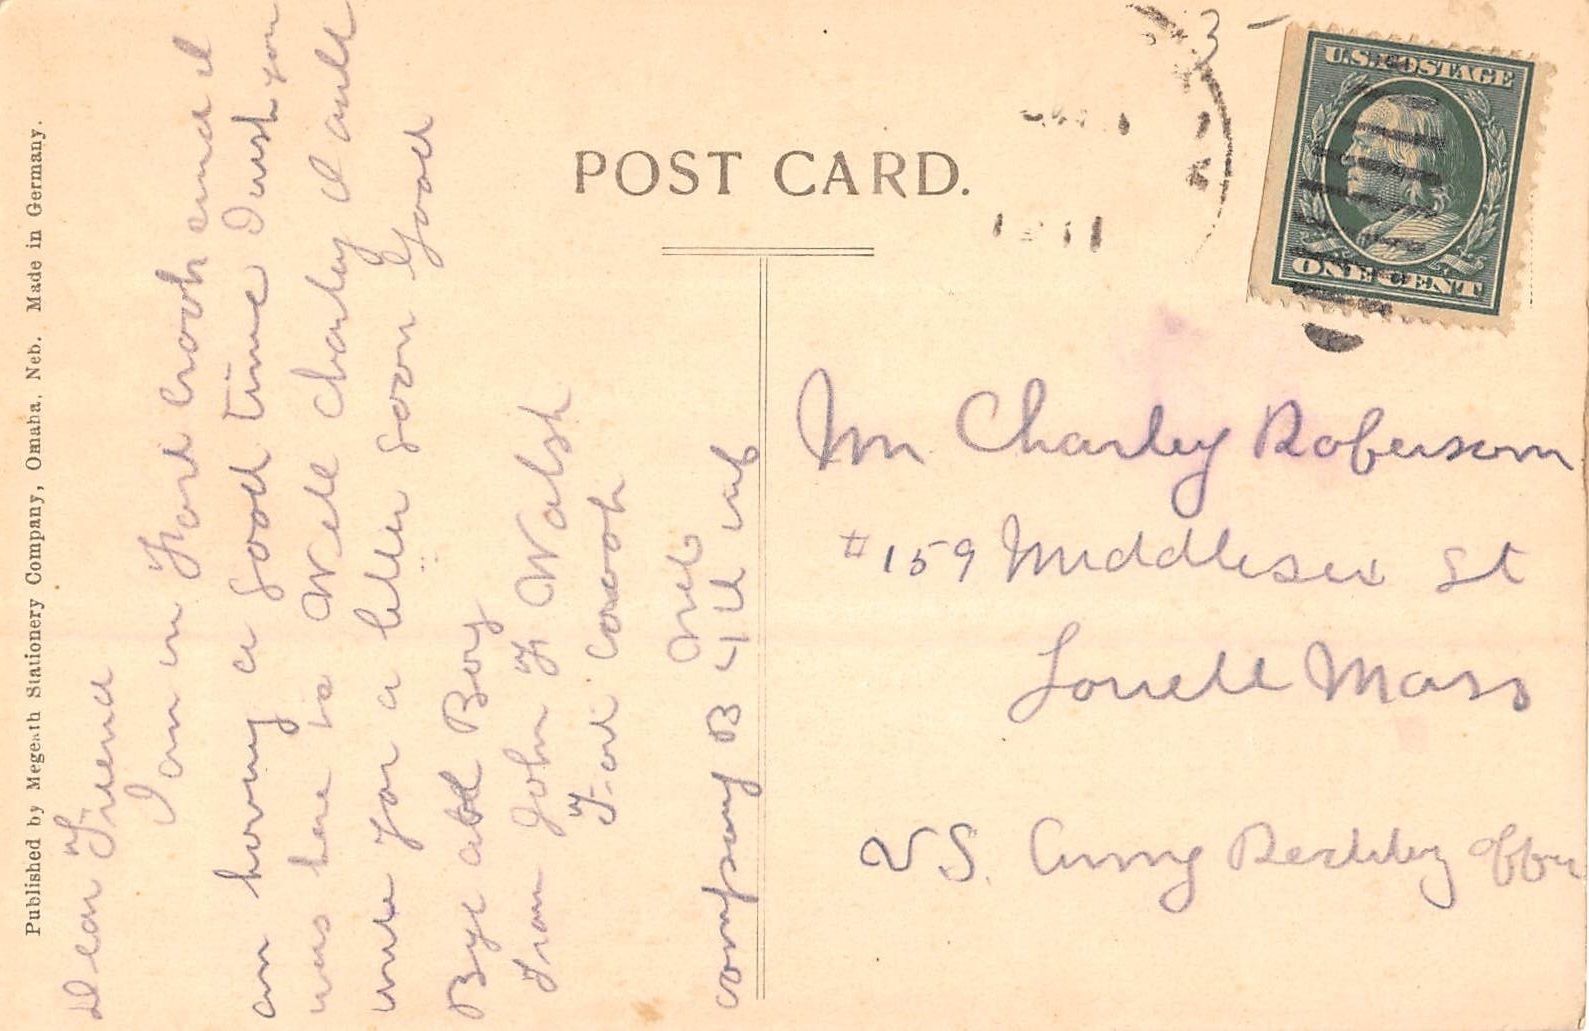 Published by Megeath Stationery Company, Omaha, Neb. Made in Germany.
POST CARD.
U.S. POSTAGE
ONE CENT
1911
Dear Friend
I am in Ford Crook and I
am having a good time I wish you
was here to Well Charley I will
write you a letter soon Good
Bye old Boy
From John F Walsh
Fort Crook
Neb
Company B 4th Inf
Mr Charley Roberson
#159 Middlesex St
Lowell Mass
US. Army